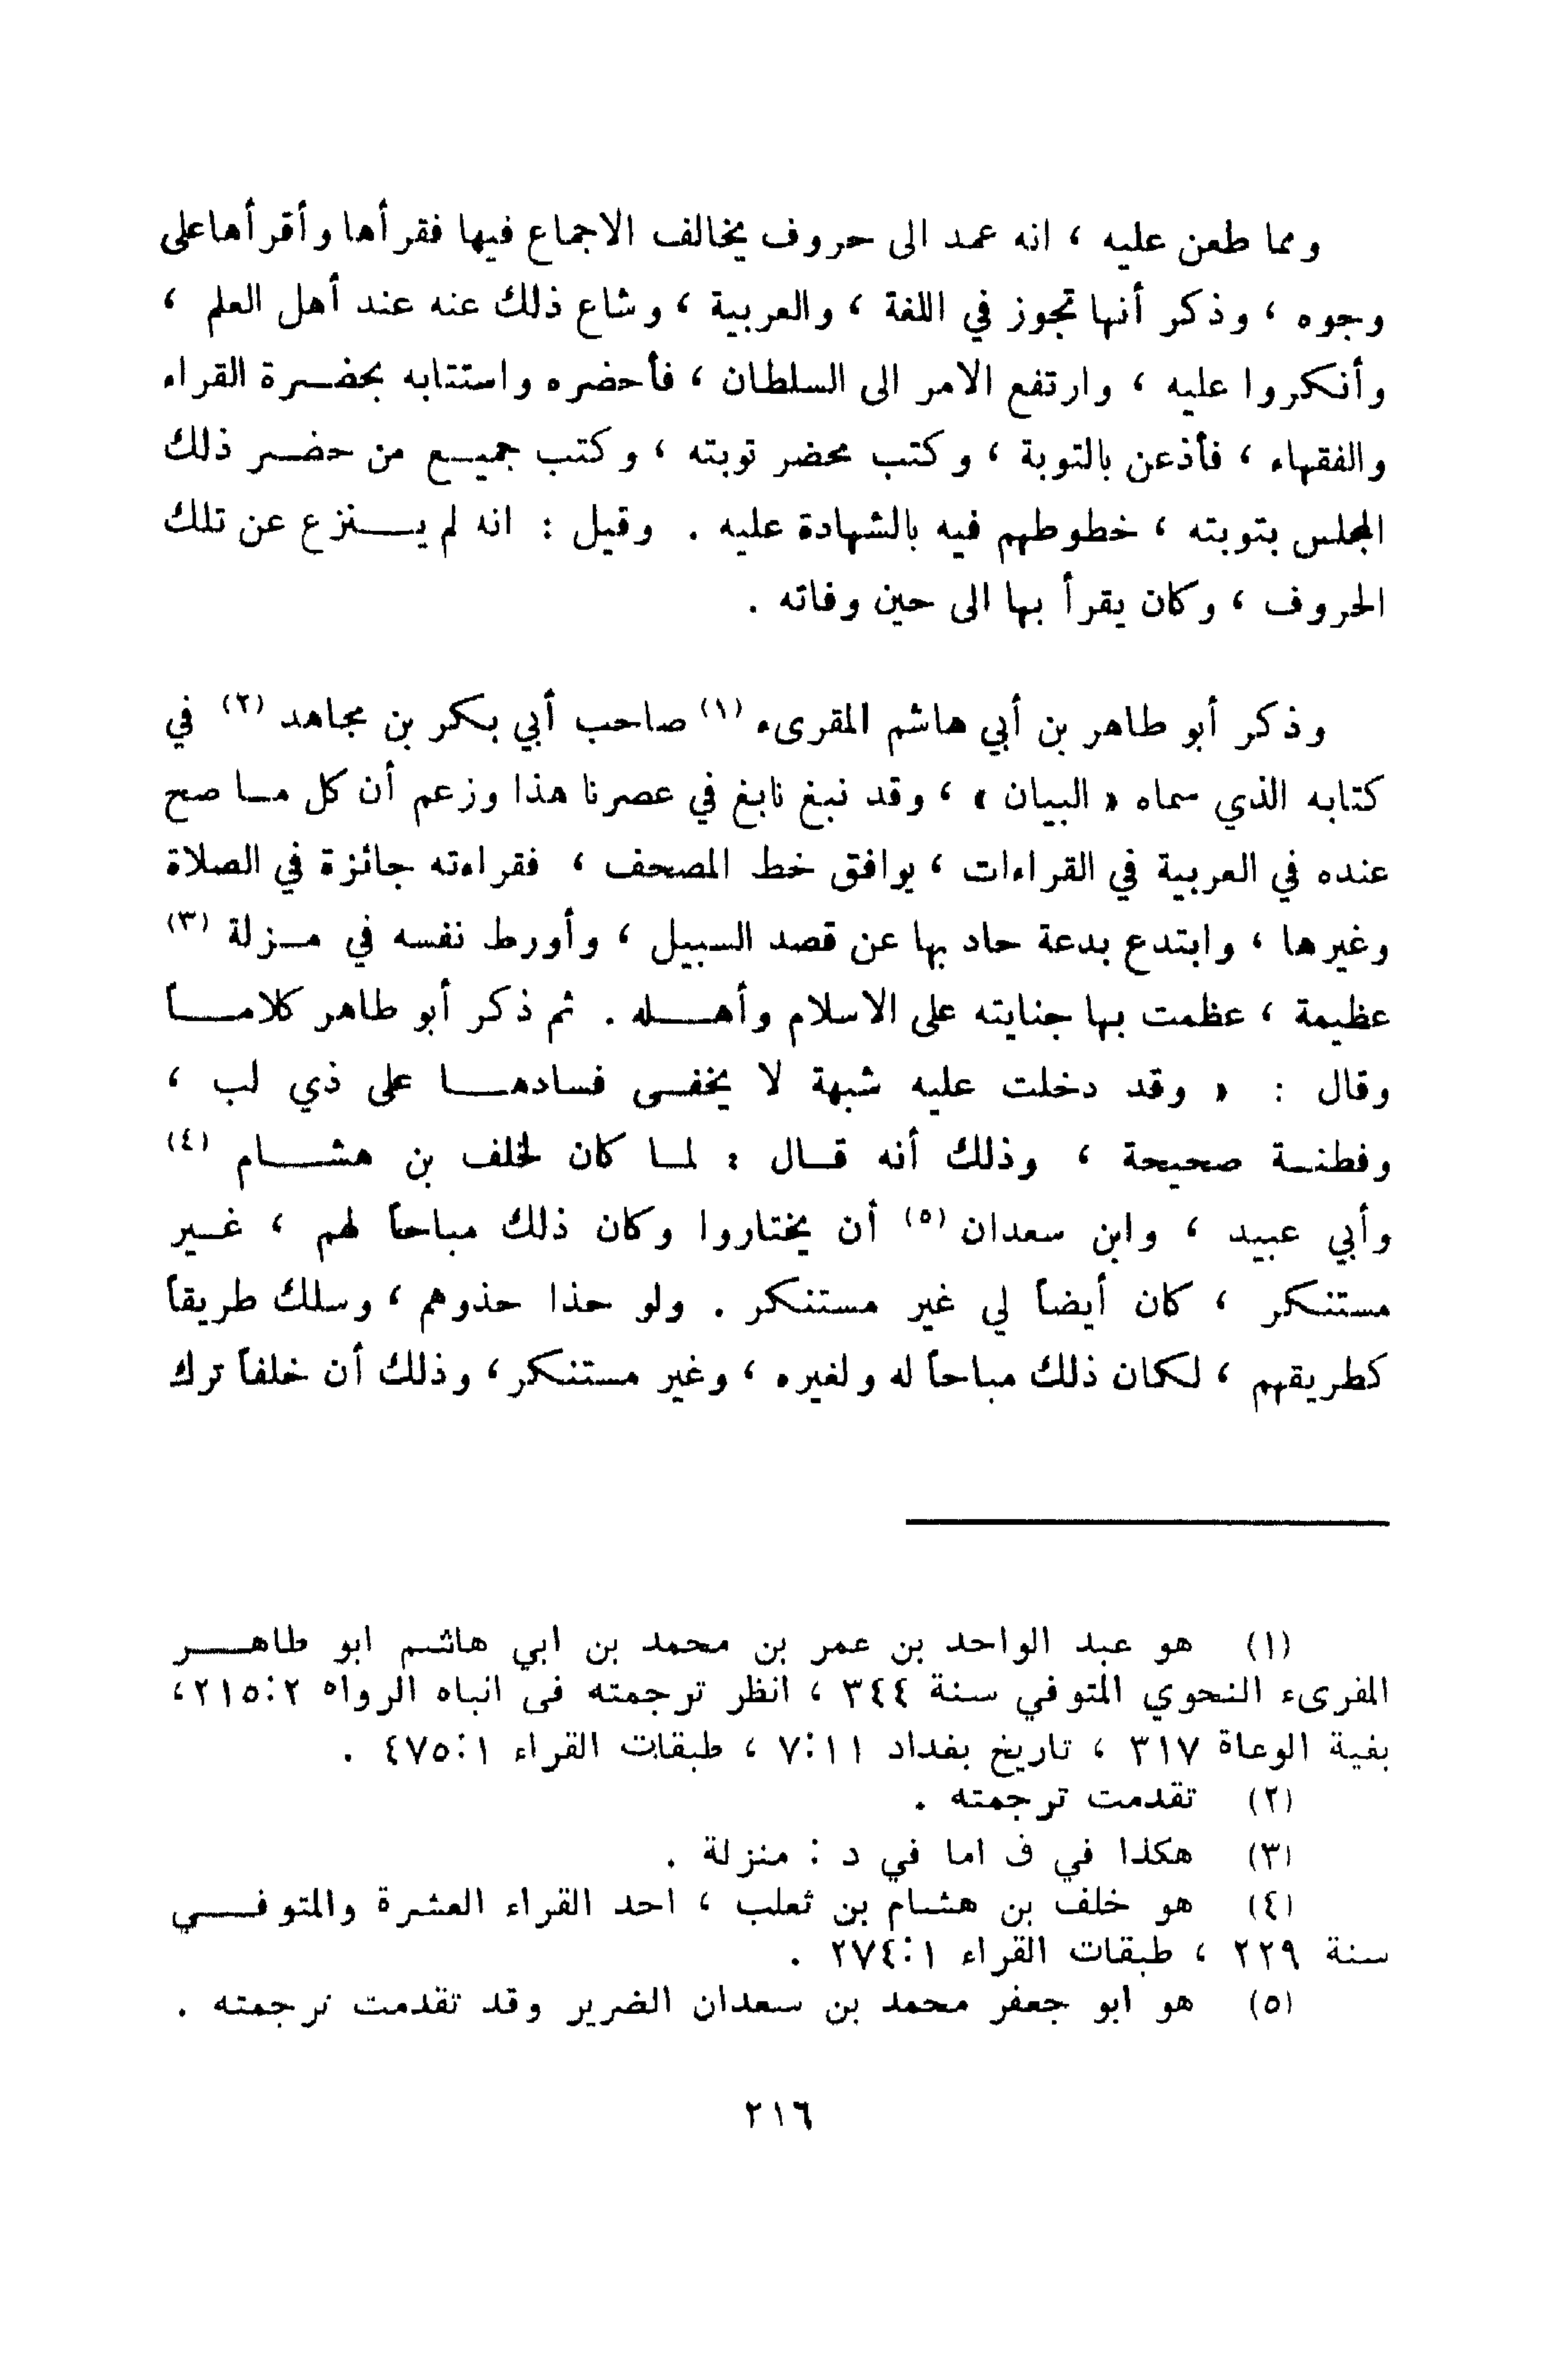 ومما طعن عليه ، انه عمد الى حروف يخالف الاجماع فيها فقرأها وأقرأها على
وجوه ، وذكر أنها تجوز في اللغة ، والعربية ، وشاع ذلك عنه عند أهل العلم ،
وأنكروا عليه ، وارتفع الامر الى السلطان ، فأحضره واستتابه بحضرة القراء
والفقهاء ، فأذعن بالتوبة ، وكتب محضر توبته ، وكتب جميع من حضر ذلك
المجلس بتوبته ، خطوطهم فيه بالشهادة عليه . وقيل : انه لم ينزع عن تلك
الحروف ، وكان يقرأ بها الى حين وفاته .
وذكر أبو طاهر بن أبي هاشم المقرىء (١) صاحب أبي بكر بن مجاهد (٢) في
كتابه الذي سماه « البيان » ، وقد نبغ نابغ في عصرنا هذا وزعم أن كل ما صح
عنده في العربية في القراءات ، يوافق خط المصحف ، فقراءته جائزة في الصلاة
وغيرها ، وابتدع بدعة حاد بها عن قصد السبيل ، وأورط نفسه في مزلة (٣)
عظيمة ، عظمت بها جنايته على الاسلام وأهله . ثم ذكر أبو طاهر كلاماً
وقال : « وقد دخلت عليه شبهة لا يخفى فسادها على ذي لب ،
وفطنة صحيحة ، وذلك أنه قال : لما كان لخلف بن هشام (٤)
وأبي عبيد ، وابن سعدان (٥) أن يختاروا وكان ذلك مباحاً لهم ، غير
مستنكر ، كان أيضاً لي غير مستنكر . ولو حذا حذوهم ، وسلك طريقاً
كطريقهم ، لكان ذلك مباحاً له ولغيره ، وغير مستنكر ، وذلك أن خلفاً ترك
(١) هو عبد الواحد بن عمر بن محمد بن ابي هاشم ابو طاهر
المقرىء النحوي المتوفي سنة ٣٤٤ ، انظر ترجمته فى انباه الرواه ٢:٢١٥،
بغية الوعاة ٣١٧ ، تاريخ بغداد ٧:١١ ، طبقات القراء ٤٧٥:١ .
(٢) تقدمت ترجمته .
(٣) هكذا في ف اما في د : منزلة .
(٤) هو خلف بن هشام بن ثعلب ، احد القراء العشرة والمتوفي
سنة ٢٢٩ ، طبقات القراء ٢٧٤:١ .
(٥) هو ابو جعفر محمد بن سعدان الضرير وقد تقدمت ترجمته .
٢١٦